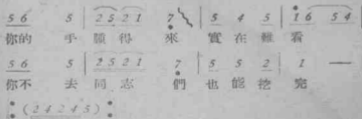 5 6 5 | 2 5 2 1 7 | 5 4 5 | 1 6 5 4
你的 手 腫得 來 實在 難 看
5 6 5 | 2 5 2 1 7 | 5 5 2 | 1 —
你不 去 同志 們 也能 挖 完
: (2 4 2 4 5) :